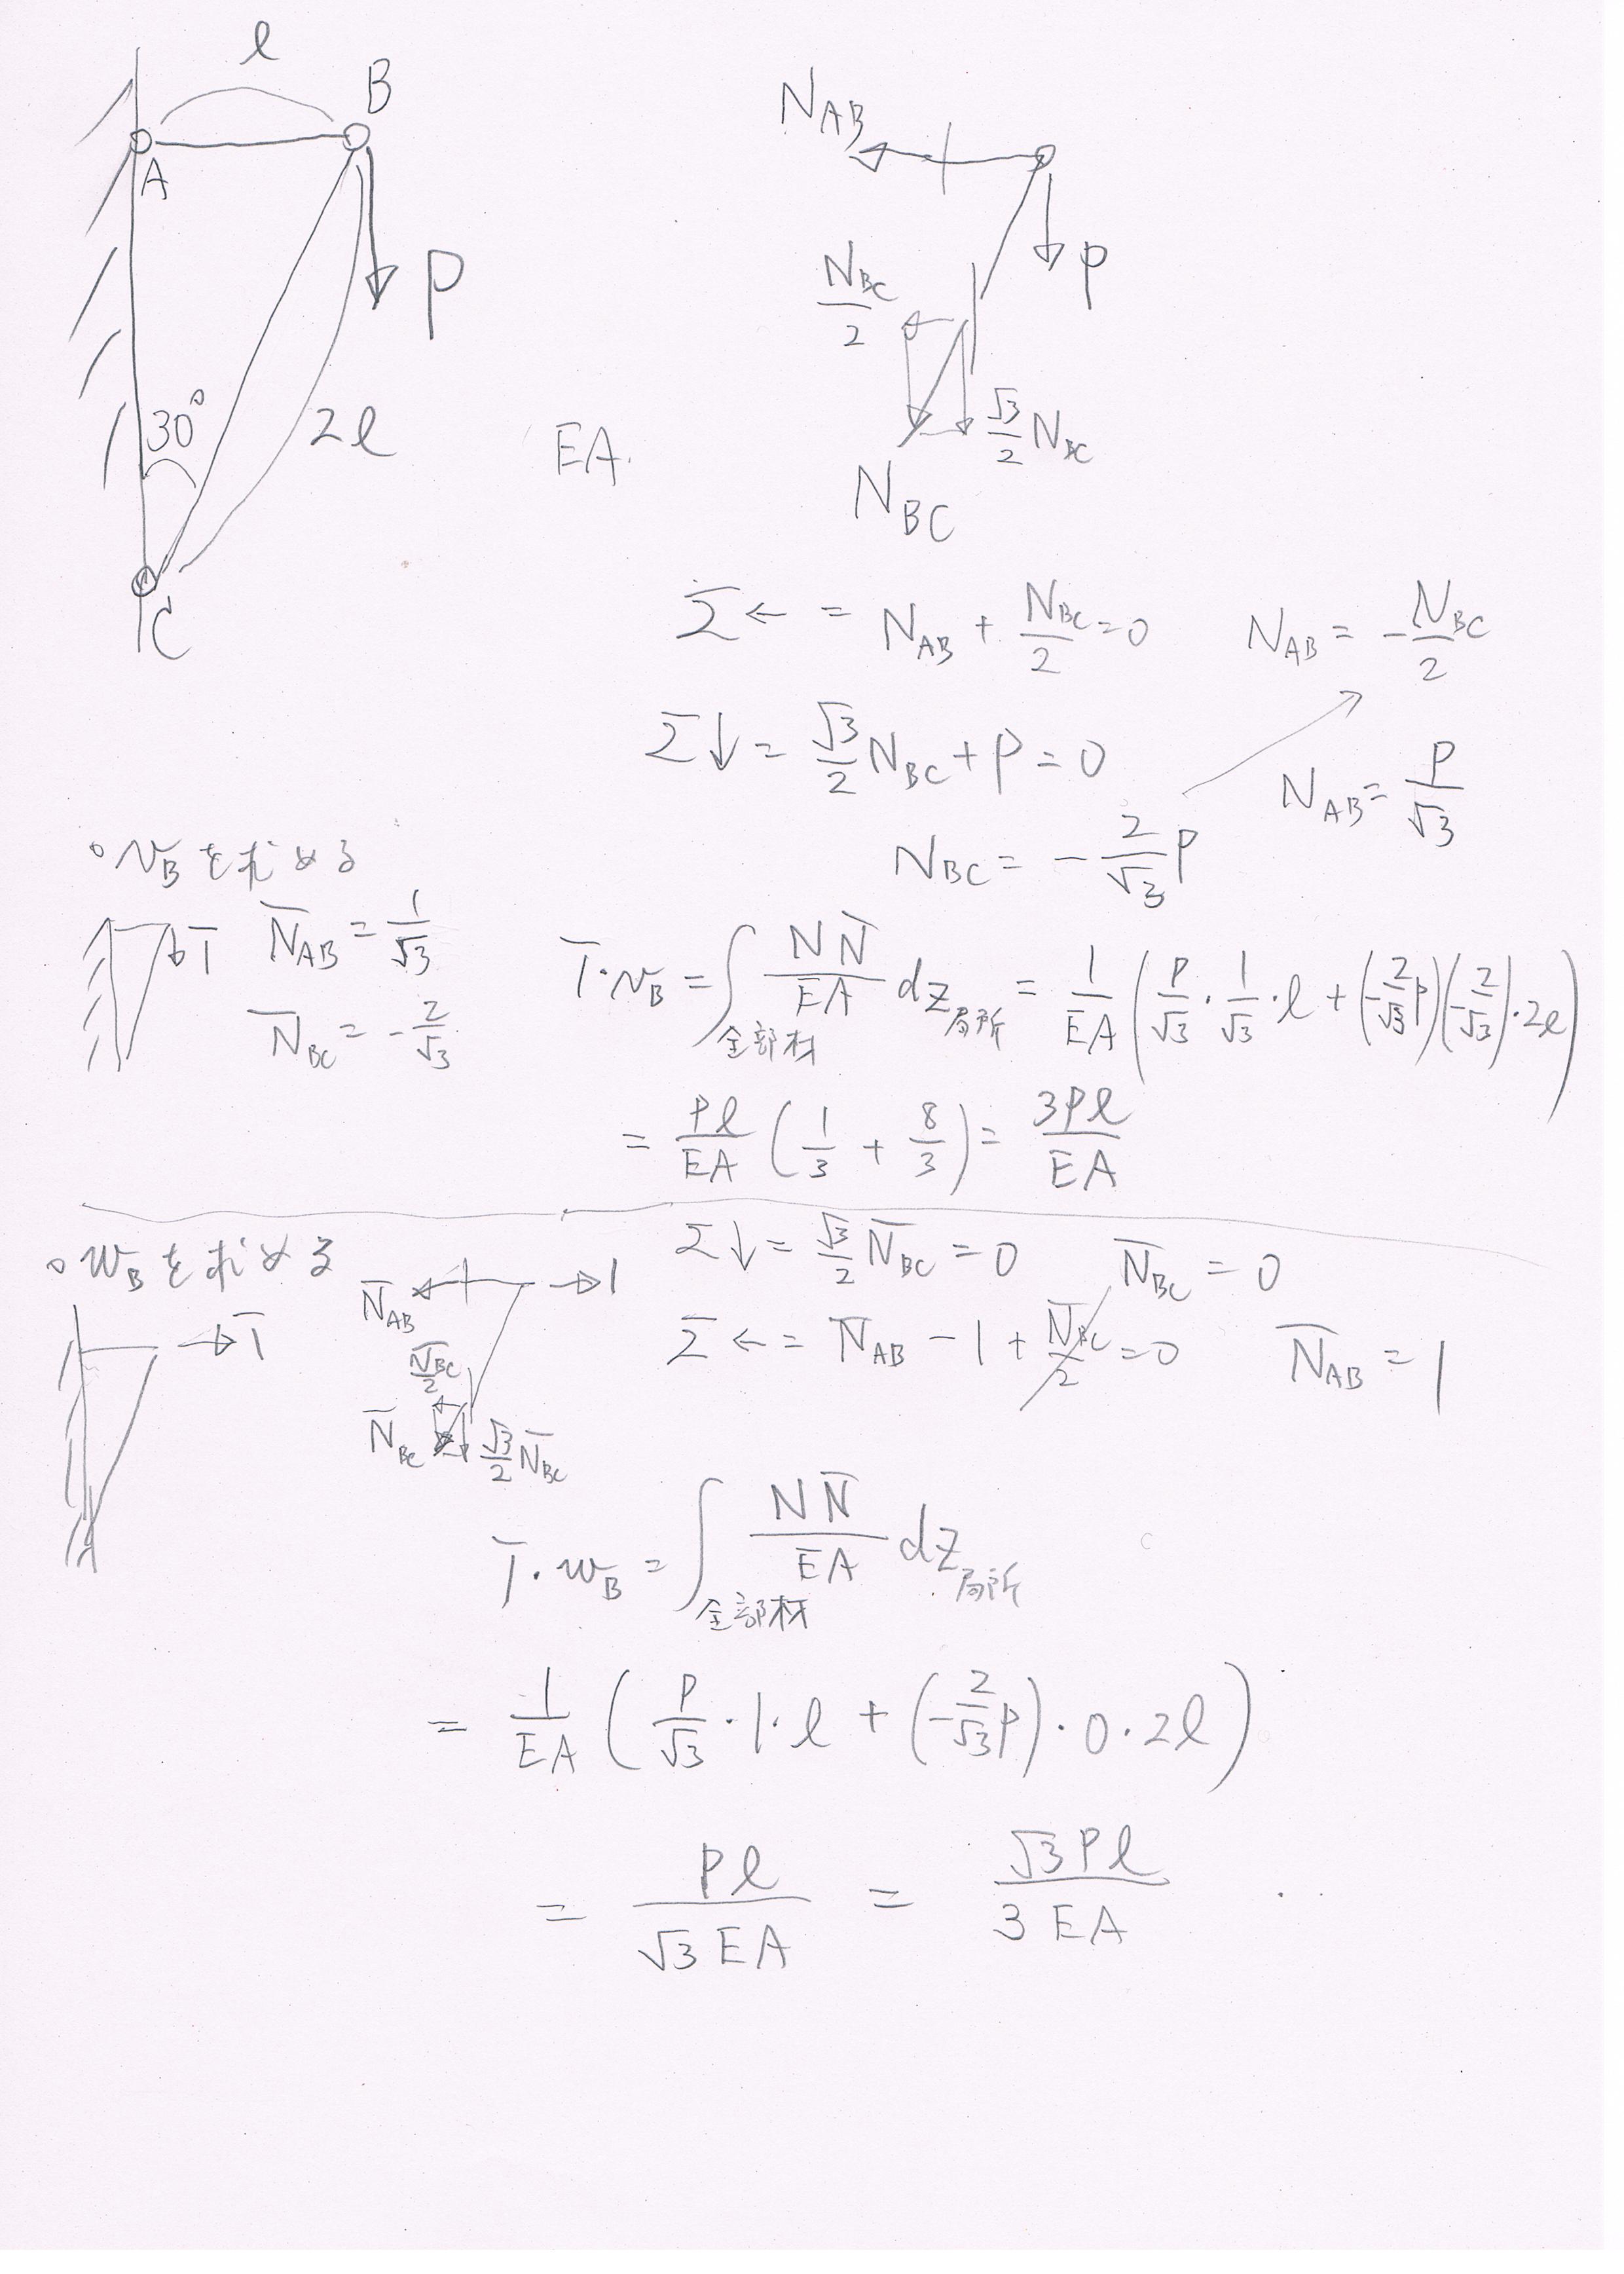 l
B
A
P
30°
2l
C
EA.
N_AB
P
N_BC/2
√3/2 N_BC
N_BC
Σ← = N_AB + N_BC/2 = 0
N_AB = -N_BC/2
Σ↓ = √3/2 N_BC + P = 0
N_AB = P/√3
N_BC = -2/√3 P
○ v_Bを求める
1̄
N̄_AB = 1/√3
N̄_BC = -2/√3
1̄・v_B = ∫全部材 NN̄/EA dz局所 = 1/EA (P/√3・1/√3・l + (-2/√3 P)(-2/√3)・2l)
= Pl/EA (1/3 + 8/3) = 3Pl/EA
○ w_Bを求める
1̄
N̄_AB
1
N̄_BC/2
N̄_BC
√3/2 N̄_BC
Σ↓ = √3/2 N̄_BC = 0
N̄_BC = 0
Σ← = N̄_AB - 1 + N̄_BC/2 = 0
N̄_AB = 1
1̄・w_B = ∫全部材 NN̄/EA dz局所
= 1/EA (P/√3・1・l + (-2/√3 P)・0・2l)
= Pl/√3 EA = √3 Pl/3 EA